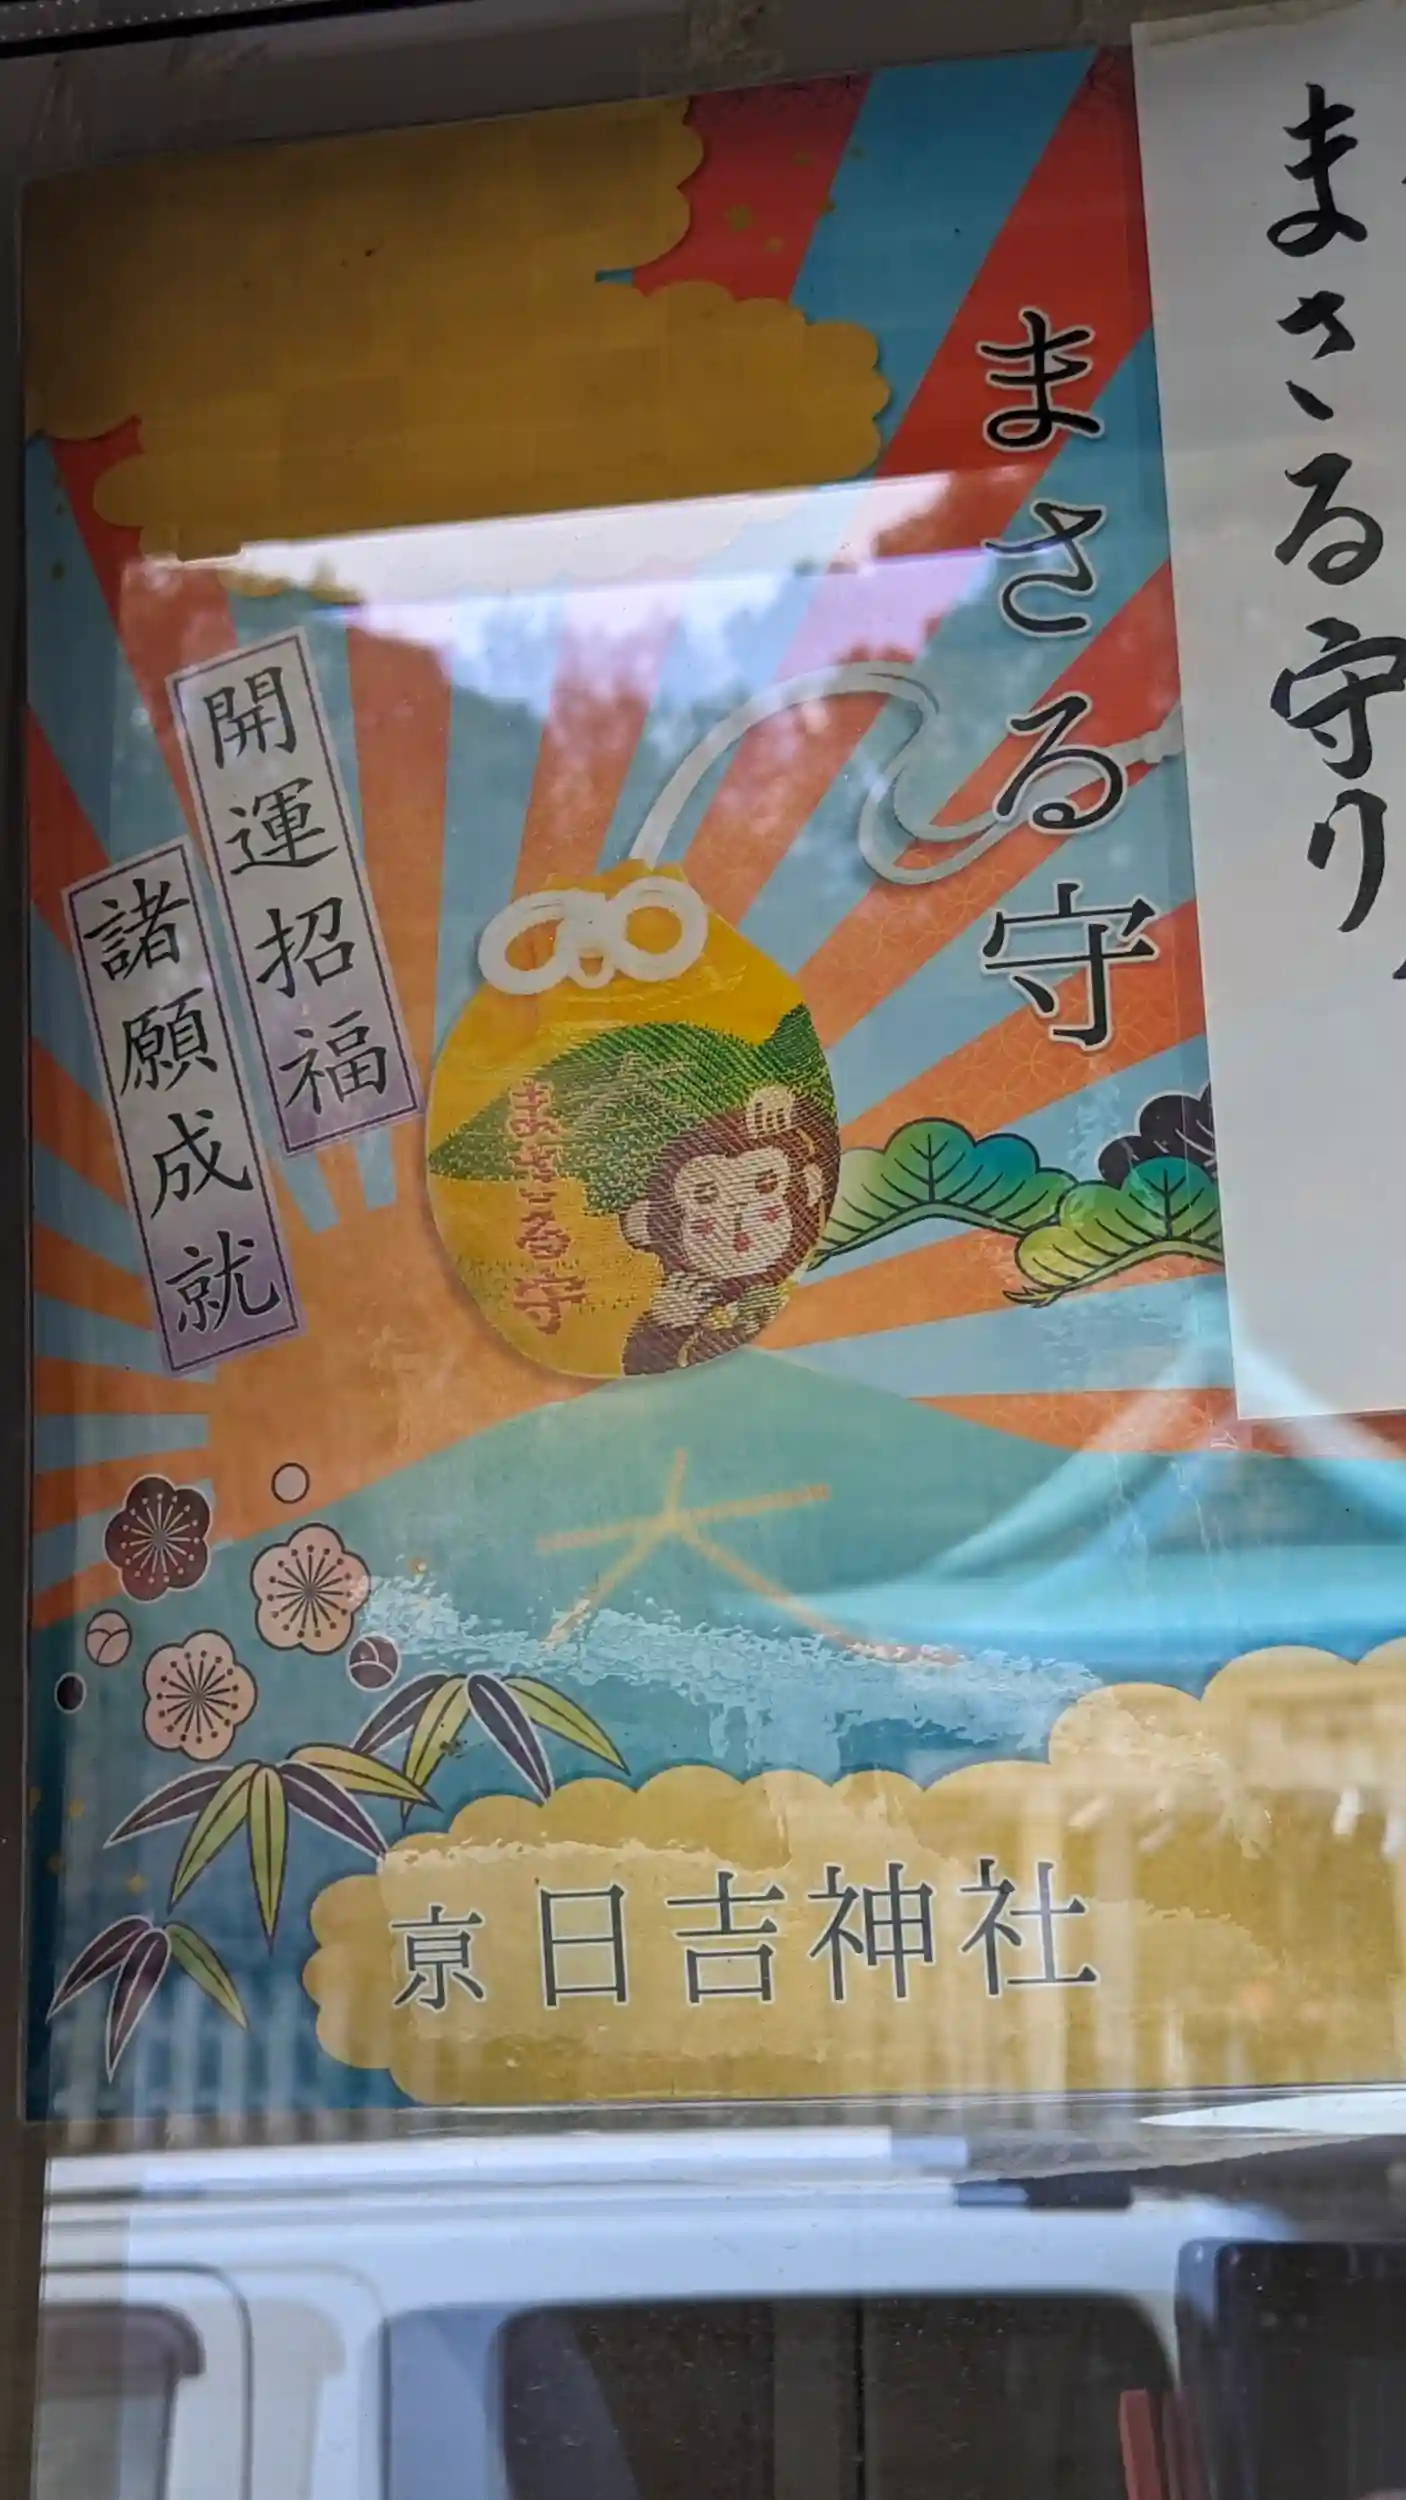 まさる守り
まさる守
開運招福
諸願成就
まさる守
大
京日吉神社